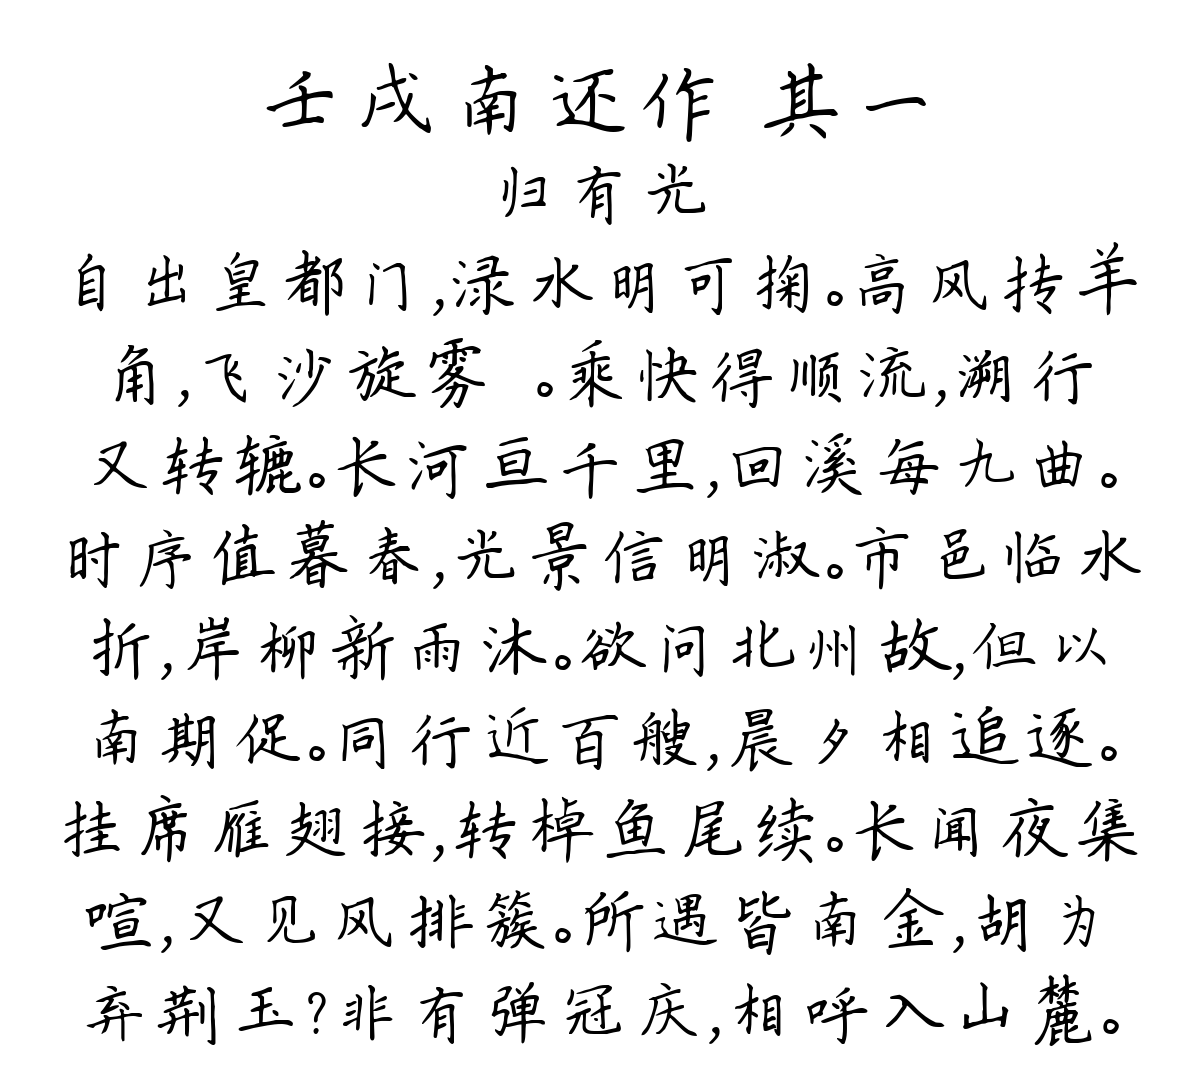 壬戌南还作 其一
归有光
自出皇都门,渌水明可掬。高风抟羊
角,飞沙旋雾 。乘快得顺流,溯行
又转辘。长河亘千里,回溪每九曲。
时序值暮春,光景信明淑。市邑临水
折,岸柳新雨沐。欲问北州故,但以
南期促。同行近百艘,晨夕相追逐。
挂席雁翅接,转棹鱼尾续。长闻夜集
喧,又见风排簇。所遇皆南金,胡为
弃荆玉?非有弹冠庆,相呼入山麓。